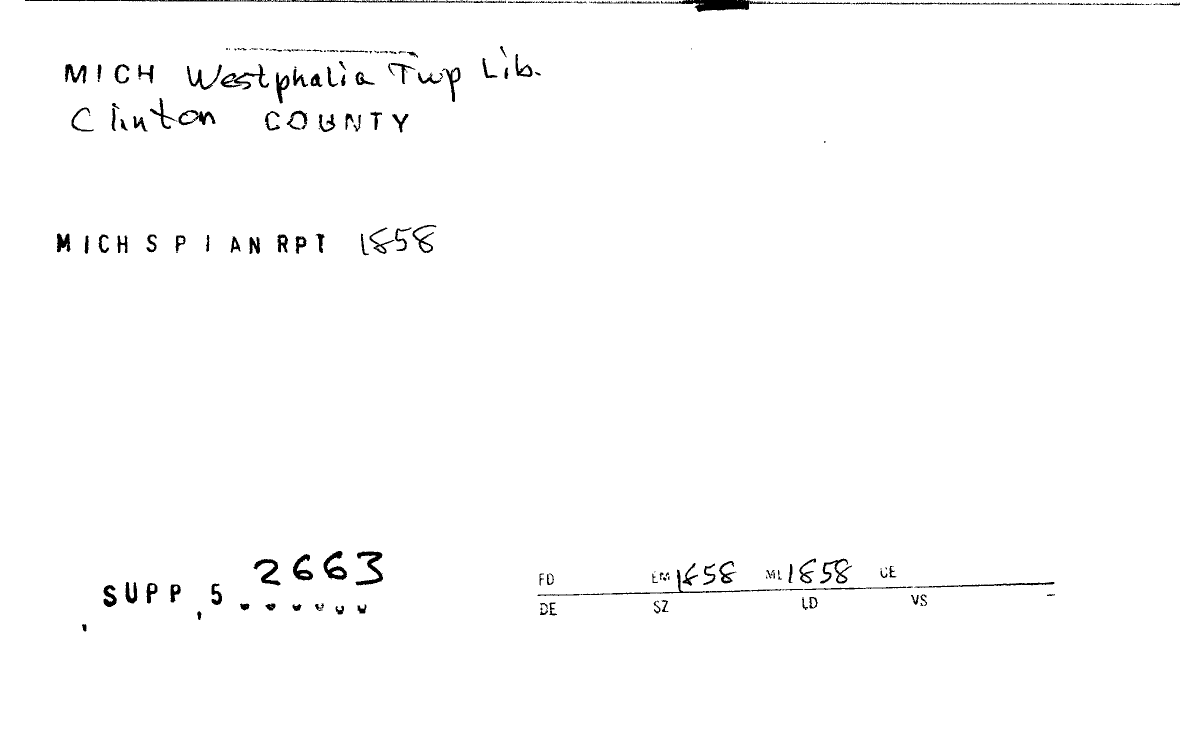 MICH Westphalia Twp Lib.
Clinton COUNTY
MICH S P I AN RPT 1858
SUPP, 5 2663
FD EM 1858 ML 1858 CE
DE SZ LD VS